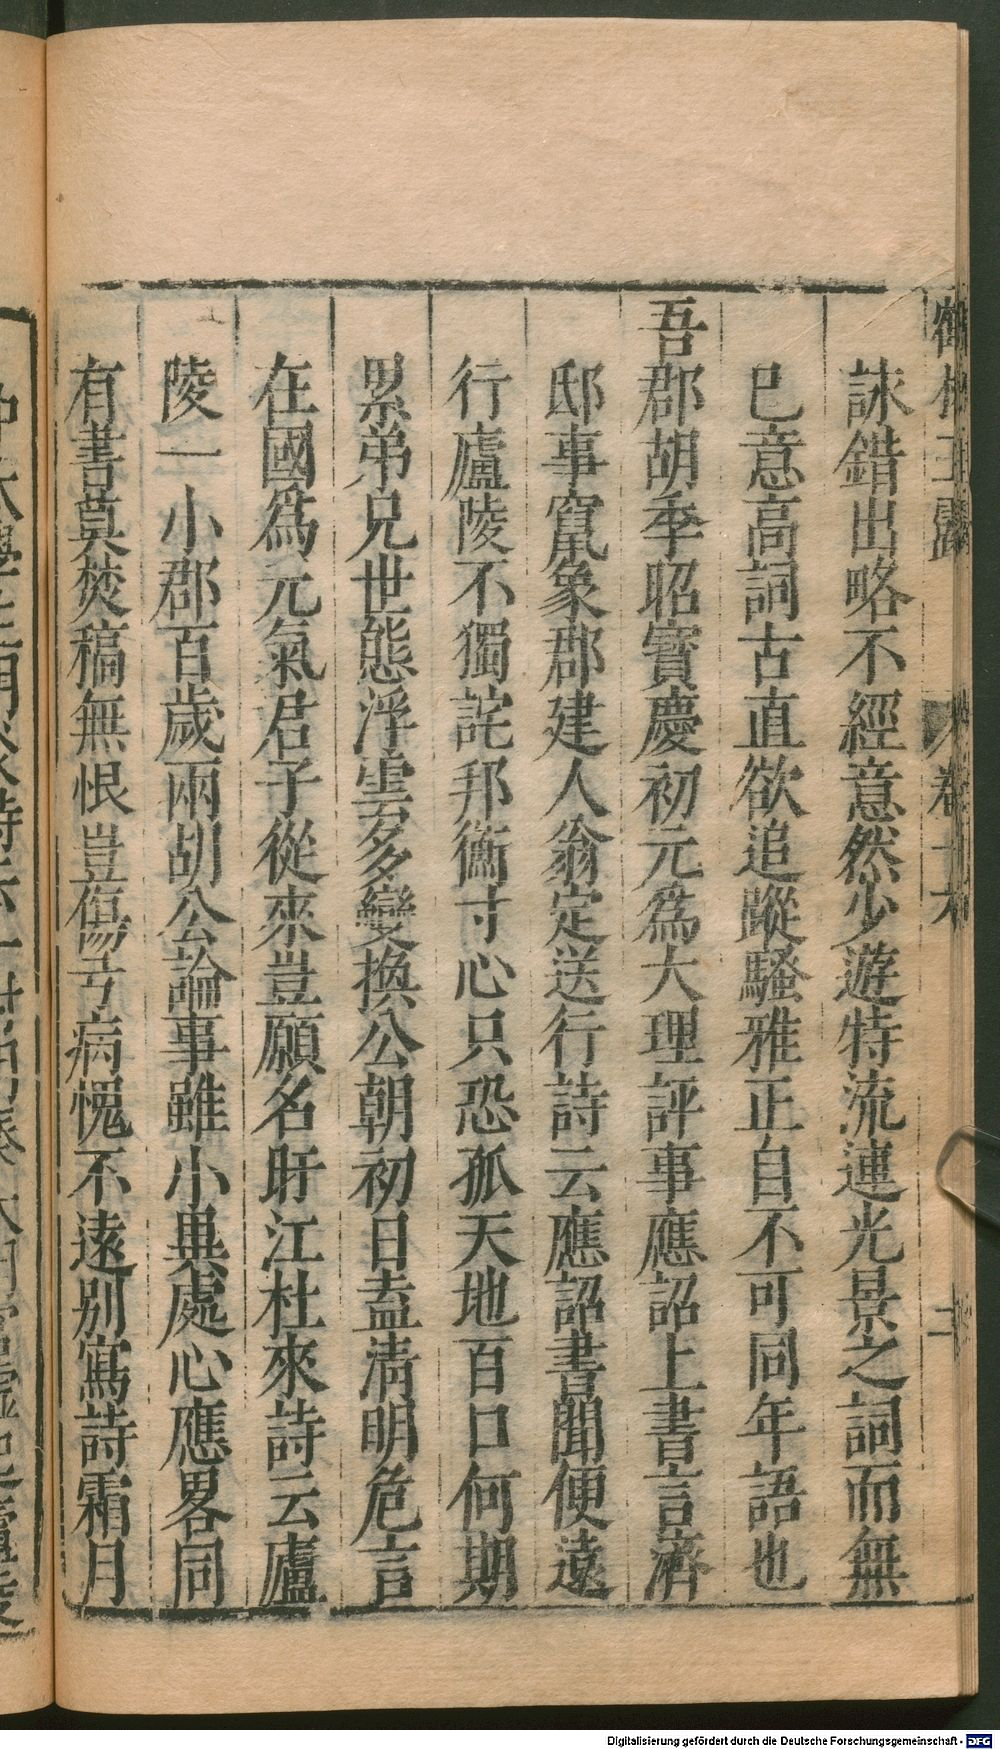 鶴林玉露　卷十六
誄錯出略不經意然少遊特流連光景之詞而無
已意高詞古直欲追蹤騷雅正自不可同年語也
吾郡胡季昭寶慶初元為大理評事應詔上書言濟
邸事竄象郡建人翁定送行詩云應詔書聞便遠
行廬陵不獨詫邦衡寸心只恐孤天地百口何期
累弟兄世態浮雲多變換公朝初日盍清明危言
在國為元氣君子從來豈願名盱江杜來詩云廬
陵一小郡百歲兩胡公論事雖小異處心應畧同
有書莫焚稿無恨豈傷弓病愧不遠別寫詩霜月
Digitalisierung gefördert durch die Deutsche Forschungsgemeinschaft - DFG